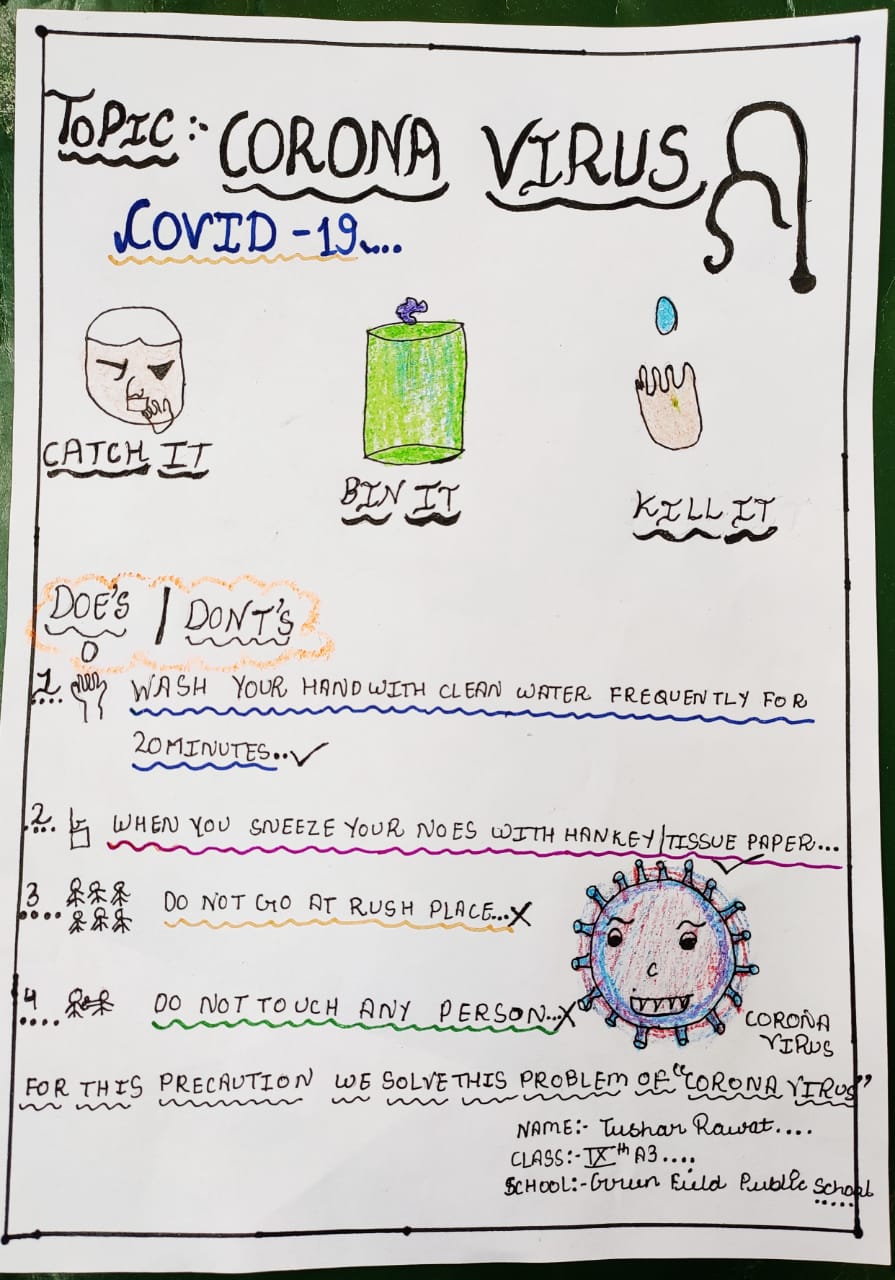 TOPIC:- CORONA VIRUS
COVID-19....
CATCH IT
BIN IT
KILL IT
DOE'S / DONT'S
1.... WASH YOUR HAND WITH CLEAN WATER FREQUENTLY FOR
20 MINUTES..✓
2... WHEN YOU SNEEZE YOUR NOES WITH HANKEY/TISSUE PAPER... ✓
3.... DO NOT GO AT RUSH PLACE...X
4.... DO NOT TOUCH ANY PERSON...X
CORONA
VIRUS
FOR THIS PRECAUTION WE SOLVE THIS PROBLEM OF "CORONA VIRUS"
NAME:- Tushar Rawat....
CLASS:- IXth A3....
SCHOOL:- Green Field Public School